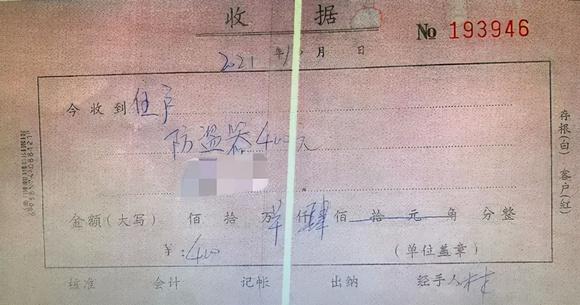 收据
No 193946
2021年1 月 日
今收到住户
防盗器400元
金额(大写) 佰 拾 万 仟肆佰 拾 元 角 分整
¥:400 (单位盖章)
核准 会计 记帐 出纳 经手人
存根(白) 客户(红)